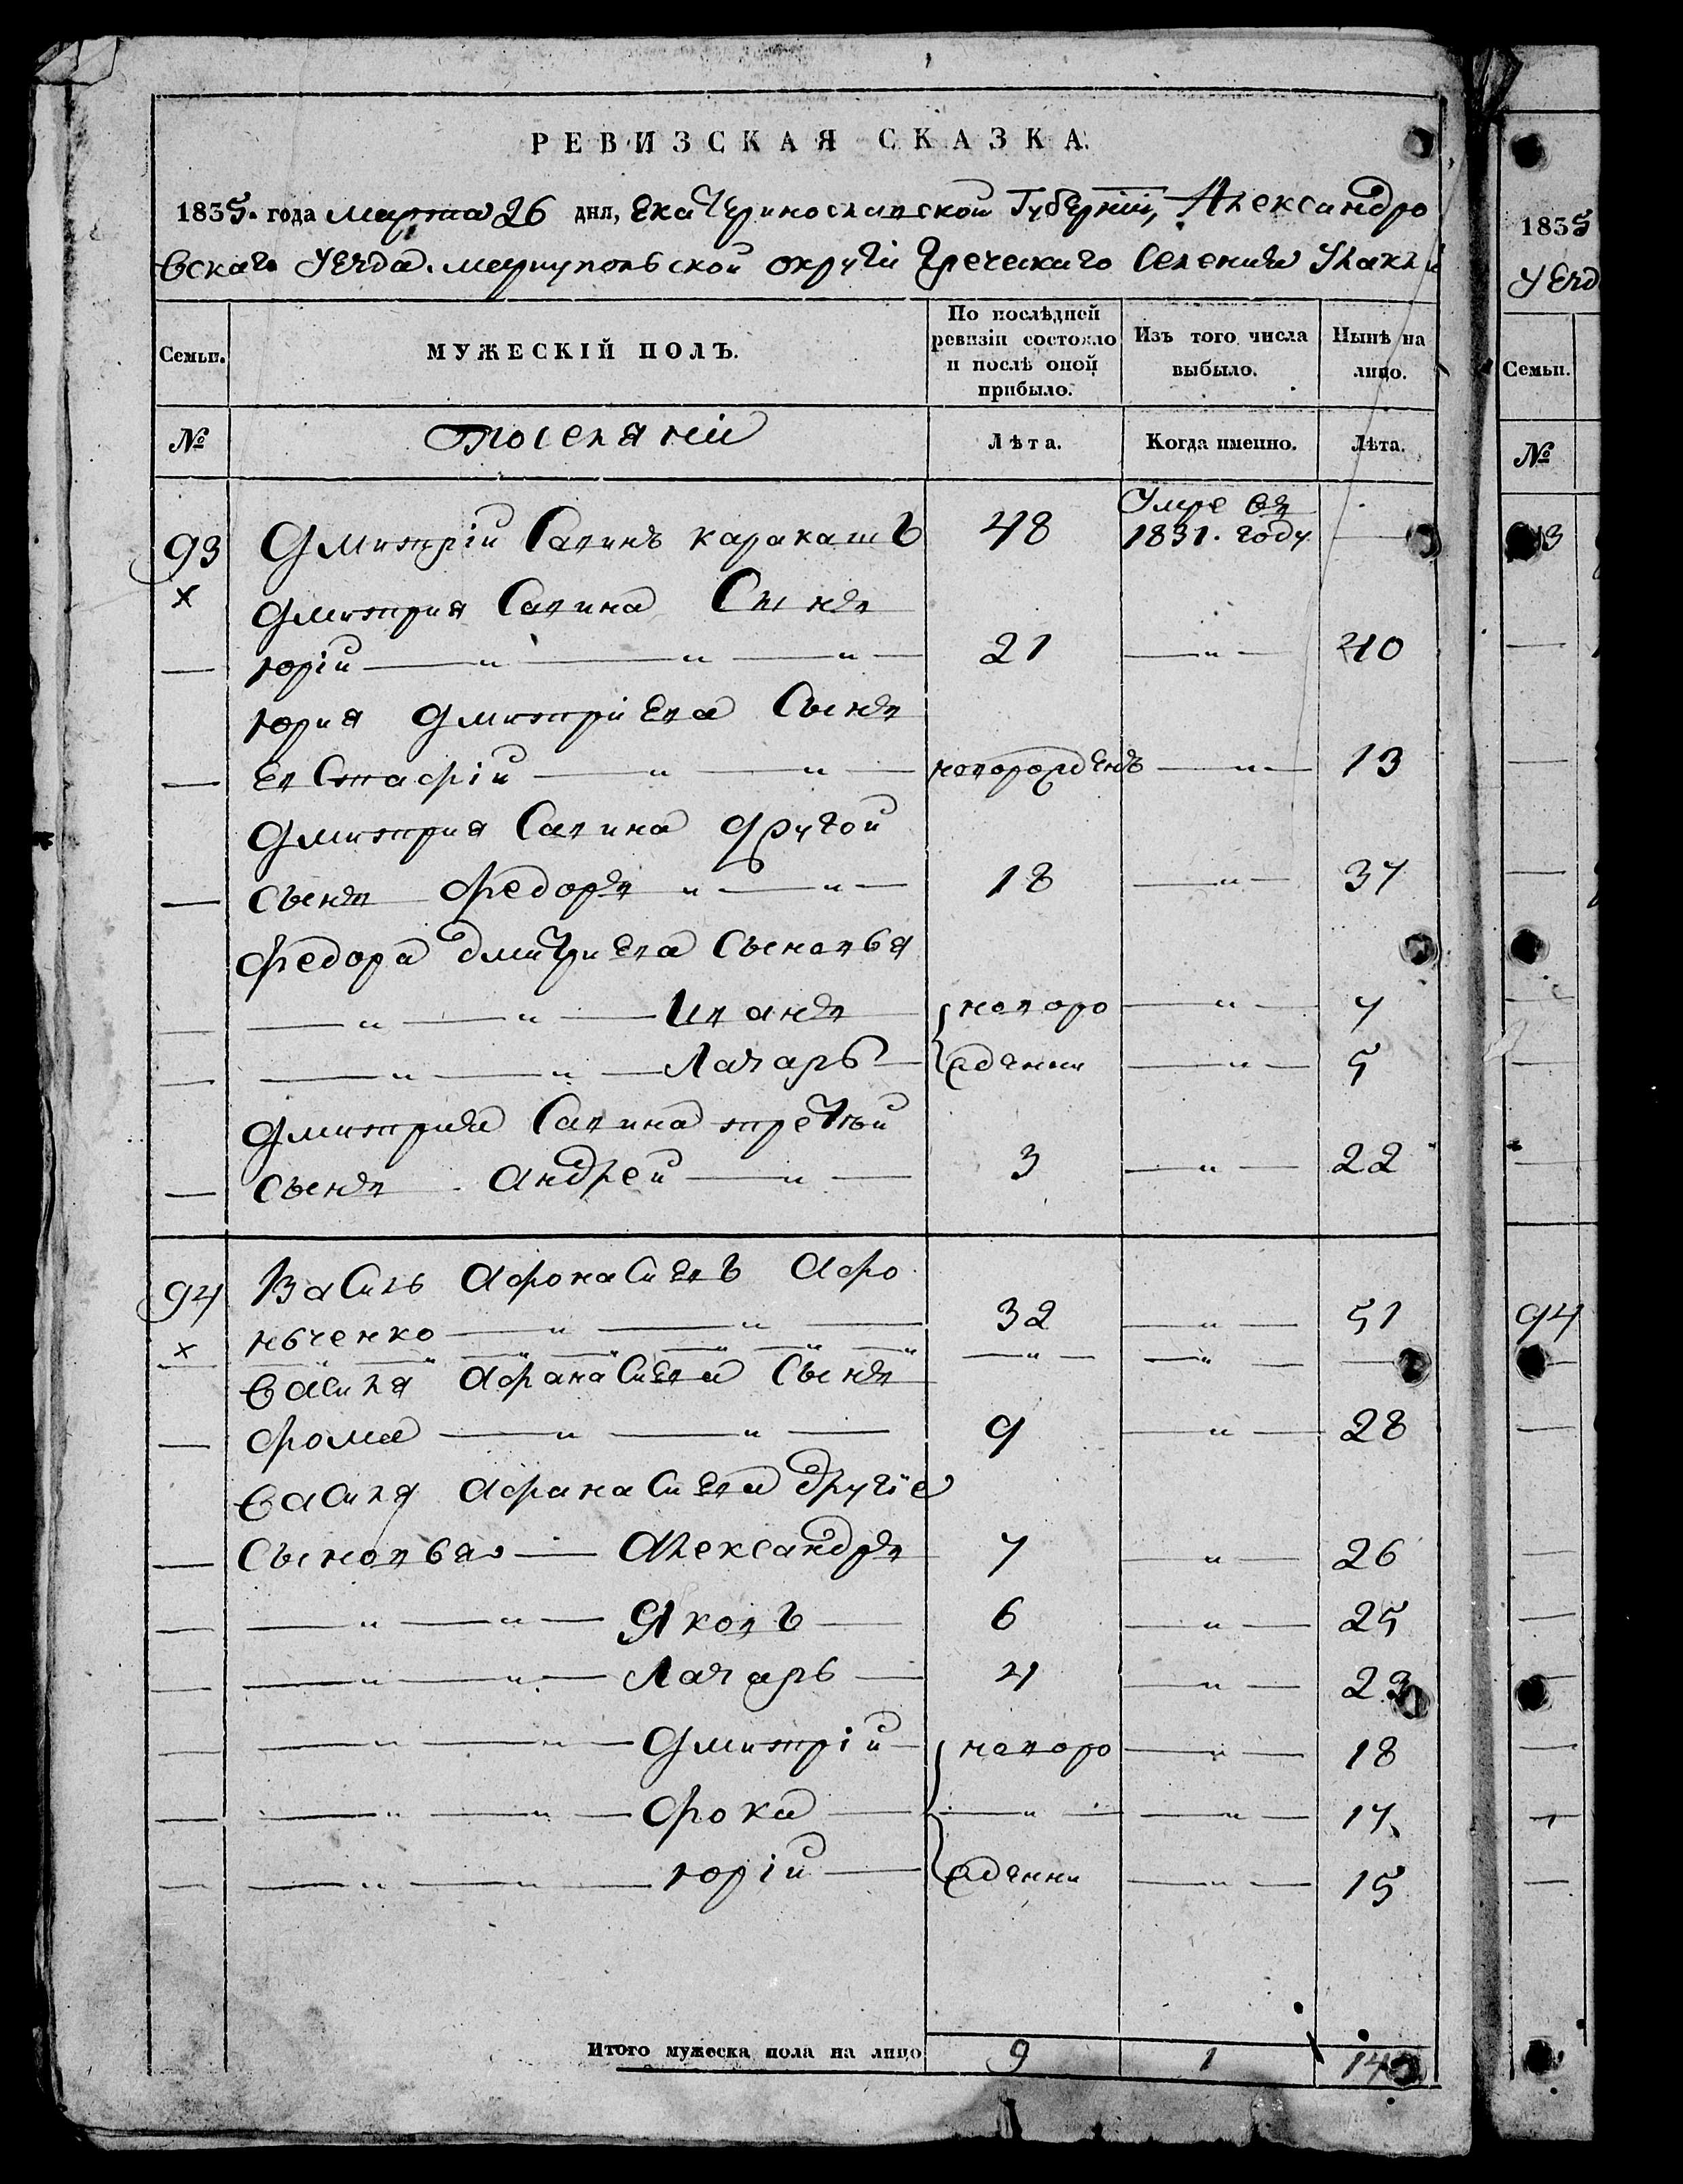 РЕВИЗСКАЯ СКАЗКА.
1835. года марта 26 дня, Екатеринославской Губерніи, Александро
вскаго Уезда. мариупольской округи Греческаго Селения Улаклы
Семьи.
МУЖЕСКІЙ ПОЛЪ.
По послѣдней ревизіи состояло и послѣ оной прибыло.
Изъ того числа выбыло.
Нынѣ на лицо.
№
Поселяніи
Лѣта.
Когда именно.
Лѣта.
93 Дмитрій Савинъ каракашъ 48 Умре въ 1831. году —
× Дмитрия Савина Сынъ
— юрій — " — " — " — 21 — " — 40
юрия Дмитріева Сынъ
— евСтафій — " — " — новорожденъ — " — 13
Дмитрия Савина другой
— сынъ федоръ " — " — 18 — " — 37
федора дмитриева сыновья
— — " — " — Иванъ новоро — " — 7
— — " — " — Лазарь — жденни — " — 5
Дмитрия Савина третъй
— сынъ Андрей — " — 3 — " — 22
94 ВаСиль АфонаСиевъ Афо
× ньченко — " — " — 32 — " — 51
ваСиля АфанаСиева Сынъ
— фома — " — " — 9 — " — 28
ваСиля АфанаСиева другіе
— Сыновья — Александръ 7 — " — 26
— — " — " — Яковъ — 6 — " — 25
— — " — " — Лазарь — 4 — " — 23
— — " — " — Дмитрій — новоро — " — 18
— — " — " — фока — — " — — " — 17
— — " — " — юрій — жденни — " — 15
Итого мужеска пола на лицо 9 1 14
1835
Уезд
Семьи.
№
94